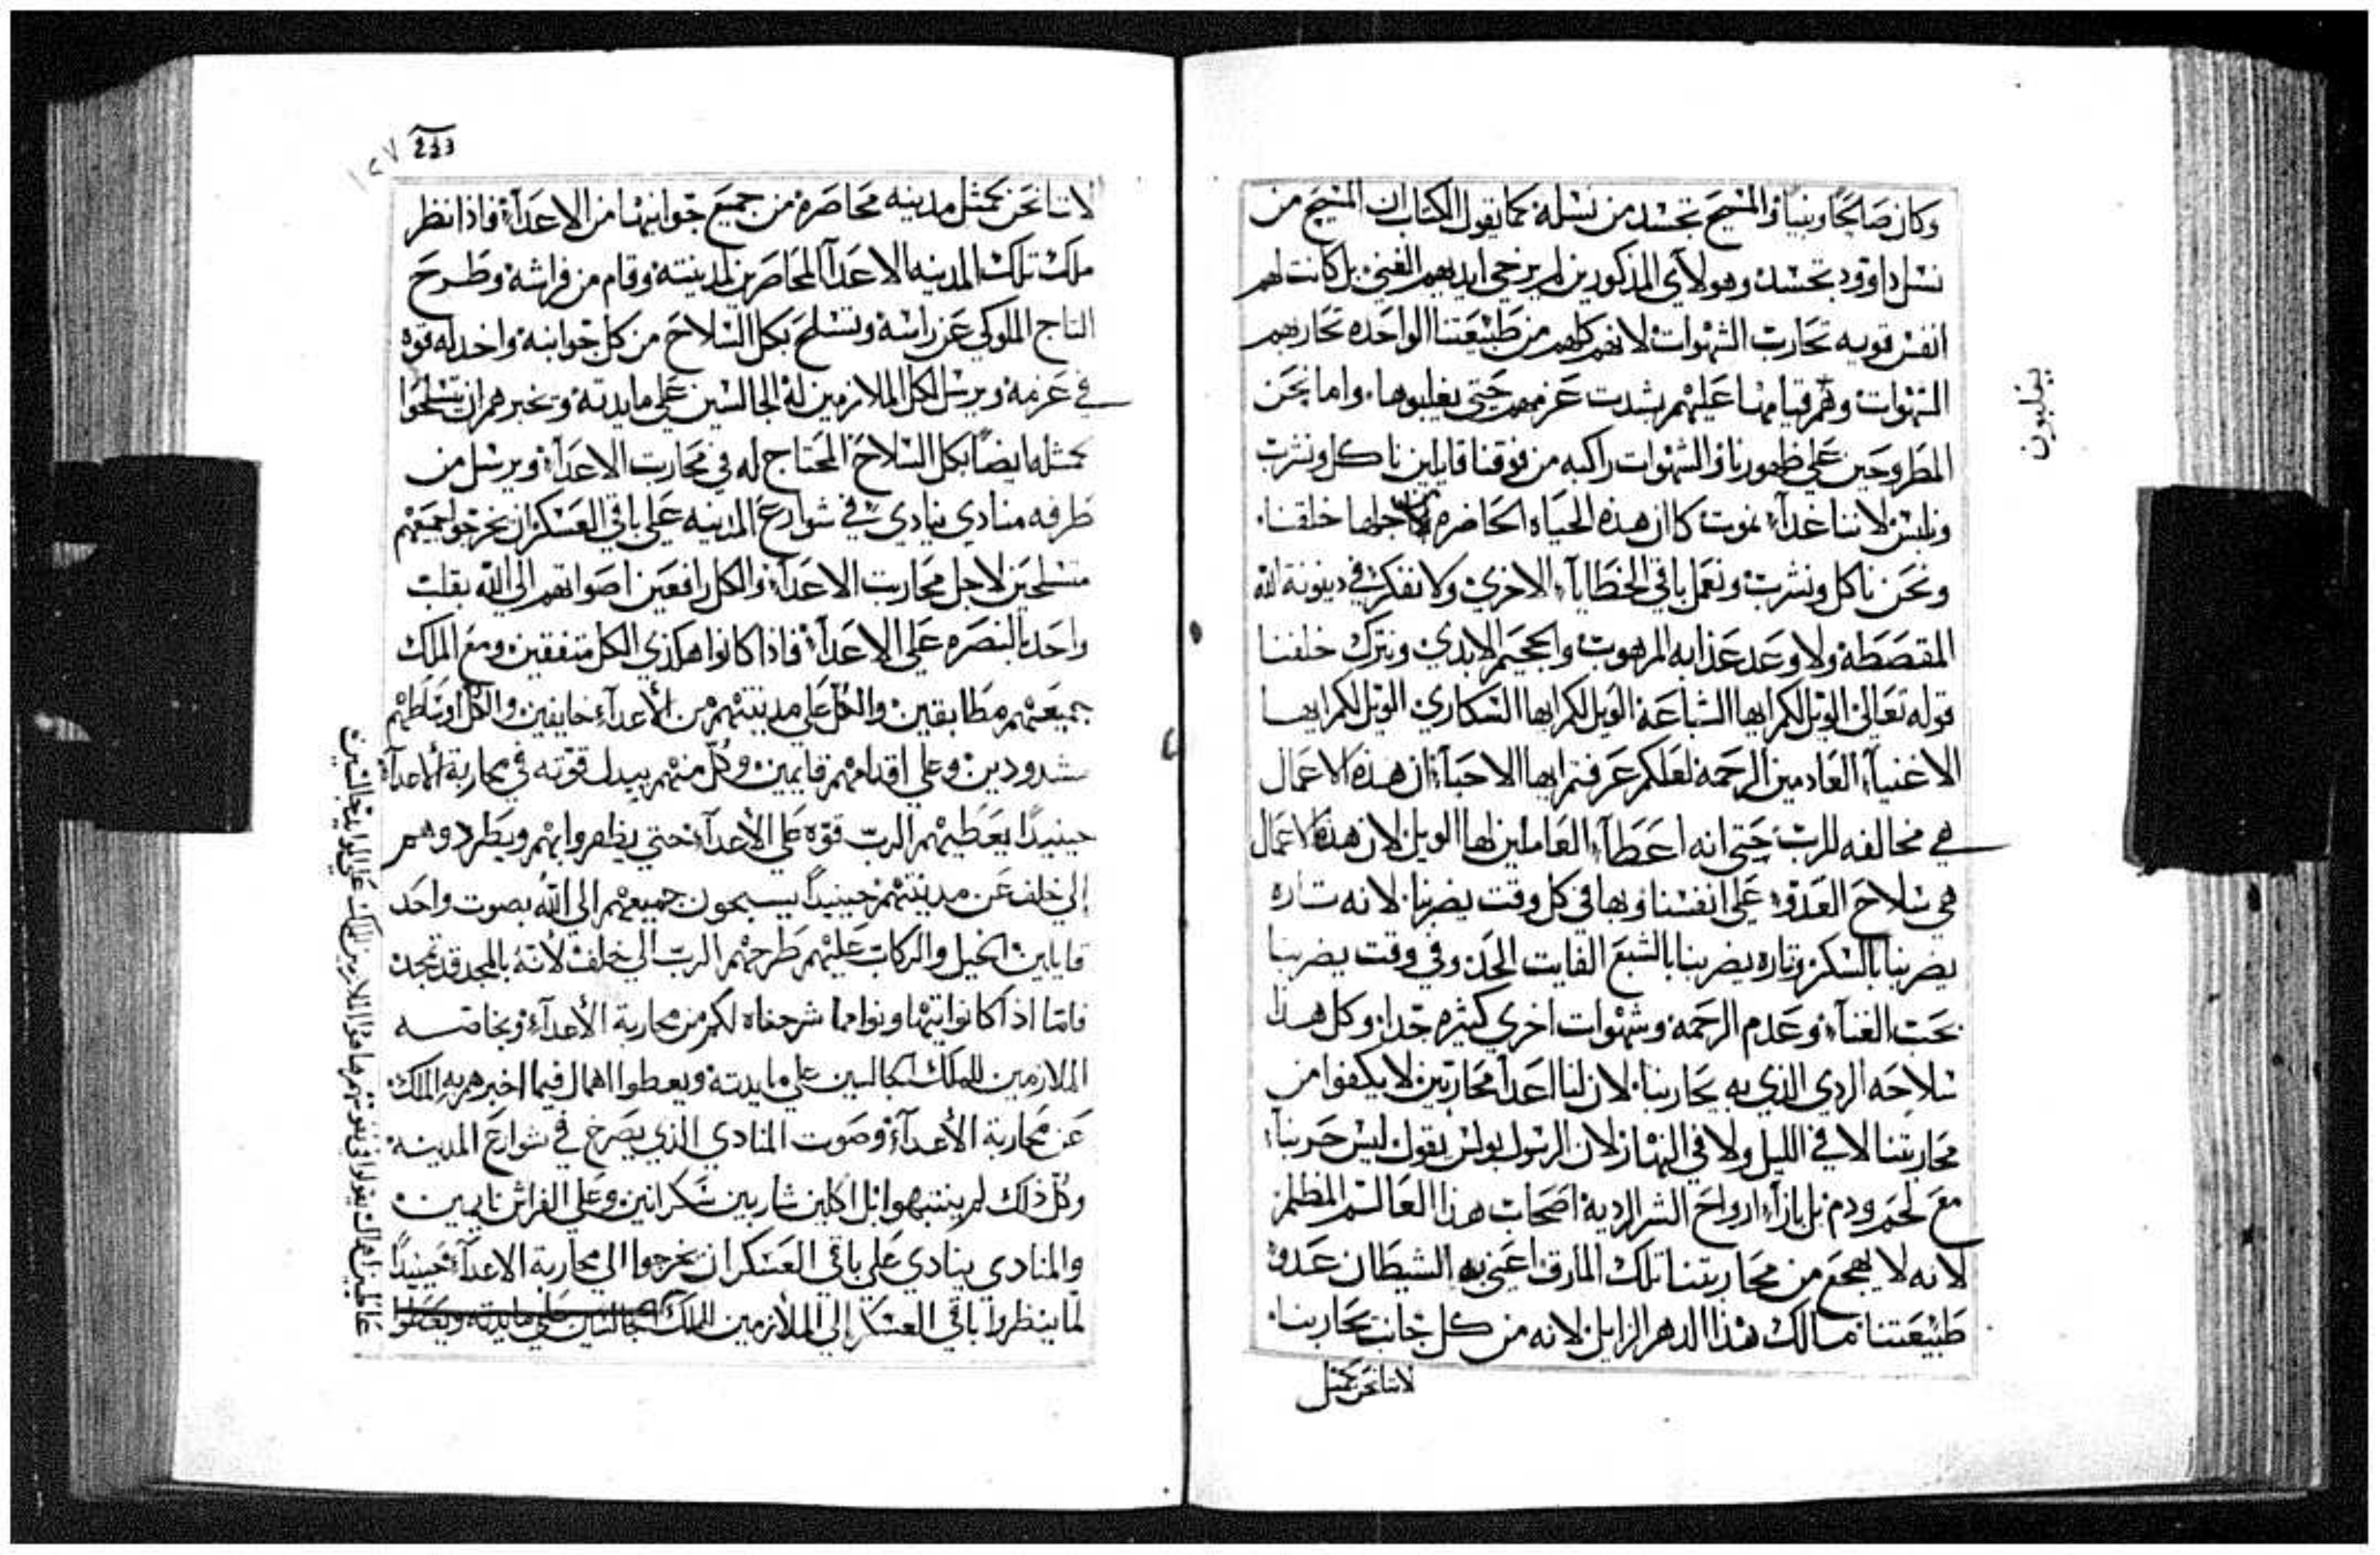 وكان صالحًا ونبيًا والمسيح تجسد من نسله كما يقول الكتاب ان المسيح من
نسل داوود تجسد وهولآي المذكورين لم يرخي ايديهم الغني بل كانت لهم
انفس قويه تحارب الشهوات لانهم كلهم من طبيعتنا الواحده تحاربهم
الشهوات وهم قيامها عليهم بشدت عزمهم حتي يغلبوها. واما نحن
المطروحين علي ظهورنا والشهوات راكبه من فوقنا قايلين ناكل ونشرب
ونلبس لاننا غدآ نموت كان هذه الحياه الحاضره من اجلها خلقنا.
ونحن ناكل ونشرب ونعمل باقي الخطايآ الاخري ولا نفكر في دينونة الله
المقصطه ولا وعد عذابه المرهوب والجحيم الابدي ونترك خلفنا
قوله تعالي الويل لكم ايها الشباعه الويل لكم ايها السكاري الويل لكم ايها
الاغنيآ العادمين الرحمه لعلكم عرفتم ايها الاحبآ ان هذه الاعمال
هي مخالفه للرب حتي انه اعطآ العاملين لها الويل لان هذه الاعمال
هي سلاح العدو علي انفسنا وبها في كل وقت يضربنا. لانه تاره
يضربنا بالسكر وتاره يضربنا بالشبع الفايت الحد وفي وقت يضربنا
بحب الغنآ وعدم الرحمه وشهوات اخري كثيره جدا. وكل هذا
سلاحه الردي الذي به يحاربنا. لان لنا اعدآ محاربين لا يكفوا من
محاربتنا لا في الليل ولا في النهار لان الرسول بولس يقول ليس حربنا
مع لحم ودم بل بازآ ارواح الشر الرديه اصحاب هذا العالم المظلم
لانه لا يهجع من محاربتنا تلك المارق اعني به الشيطان عدو
طبيعتنا. مالك هذا الدهر الزايل لانه من كل جانب يحاربنا.
لاننا نحن كمثل
يغلبون
233
١٢٧
لاننا نحن كمثل مدينه محاصره من جميع جوانبها من الاعدآ فاذا نظر
ملك تلك المدينه الاعدآ المحاصرين لمدينته وقام من فراشه وطرح
التاج الملوكي عن راسه وتسلح بكل السلاح من كل جوانبه واخد له قوه
في عزمه ويرسل لكل الملازمين له الجالسين علي مايدته وتخبرهم ان يتسلحوا
كمثله ايضًا بكل السلاح المحتاج له في محاربت الاعدآ ويرسل من
طرفه منادي ينادي في شوارع المدينه علي باقي العسكر ان يخرجوا جميعهم
متسلحين لاجل محاربت الاعدآ والكل رافعين اصواتهم الي الله بقلب
واحد بالنصره علي الاعدآ فاذا كانوا هكذي الكل متفقين ومع الملك
جميعهم مطابقين والكل علي مدينتهم من الأعدآء خايفين والكل اوساطهم
مشدودين وعلي اقدامهم قايمين وكل منهم يبدل قوته في محاربة الأعدآء
حينيدًا يعطيهم الرب قوه علي الأعدآء حتي يظفروا بهم ويطردوهم
إلي خلف عن مدينتهم حينيدًا يسبحون جميعهم الي الله بصوت واحد
قايلين الخيل والركاب عليهم طرحهم الرب الي خلف لأنه بالمجد قد تمجد
فامّا اذا كانوا يتهاونوا مما شرحناه لكم من محاربة الأعدآء وبخاصه
الملازمين للملك الجالسين علي مايدته ويعطوا اهمال فيما اخبرهم به الملك
عن محاربة الأعدآء وصوت المنادي الذي يصرخ في شوارع المدينه
وكل ذلك لم ينتبهوا بل اكلين شاربين سكرانين وعلي الفراش نايمين
والمنادي ينادي علي باقي العسكر ان يخرجوا الي محاربة الاعدآء حينيدًا
لما ينظروا باقي العسكر إلي الملازمين الملك الجالسين علي مايدته ويعطوا